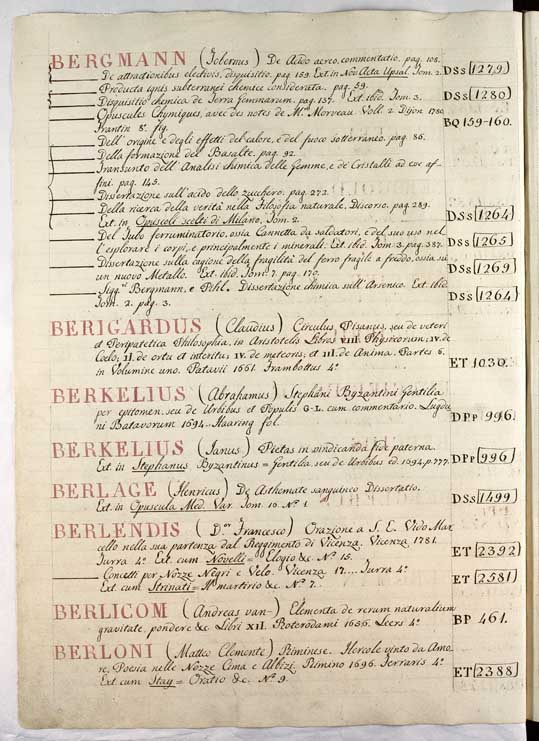 BERGMANN (Tobernus) De Acido aereo, commentatio. pag. 108. DSs 1279
De attractionibus electivis, disquisitio. pag. 159. Ext. in Nov. Acta Upsal. Tom. 2.
Producta ignis subterranei chemice considerata. pag. 59. DSs 1280
Disquisitio chemica de Terra Gemmarum. pag. 137. Ext. ibid. Tom. 3.
Opuscules Chymiques, avec des notes de Mr. Morveau. Voll. 2 Dijon 1780 BQ 159-160.
Frantin 8º fig.
Dell' origine, e degli effetti del calore, e del fuoco sotterraneo. pag. 86.
Della formazione del Basalte. pag. 92.
Transunto dell' Analisi chimica delle Gemme, e de' Cristalli ad esse af-
fini. pag. 145.
Dissertazione sull'acido dello zucchero. pag. 272.
Della ricerca della verità nella Filosofia naturale. Discorso. pag. 289.
Ext. in Opuscoli scelti di Milano, Tom. 2. DSs 1264
Del Tubo ferruminatorio, ossia Cannetta da saldatori, e del suo uso nel-
l'esplorare i corpi, e principalmente i minerali. Ext. ibid. Tom. 3. pag. 387. DSs 1265
Dissertazione sulla cagione della fragilità del ferro fragile a freddo, ossia su
un nuovo Metallo. Ext. ibid. Tom. 7. pag. 170. DSs 1269
Bergmann, e Pihl. Dissertazione chimica sull'Arsenico. Ext. ibid.
Tom. 2. pag. 3. DSs 1264
BERIGARDUS (Claudius) Circulus Pisanus, seu de veteri
et Peripatetica Philosophia, in Aristotelis Libros VIII. Physicorum; IV. de
Coelo; II. de ortu et interitu; IV. de meteoris; et III. de Anima. Partes 6.
in Volumine uno. Patavii 1661. Frambottus 4º ET 1030.
BERKELIUS (Abrahamus) Stephani Byzantini Gentilia
per epitomen, seu de Urbibus et Populis G-L. cum commentario. Lugdu-
ni Batavorum 1694. Haaring fol. DPp 996.
BERKELIUS (Janus) Pietas in vindicanda fide paterna.
Ext. in Stephanus Byzantinus = Gentilia, seu de Urbibus ed. 1694. p. 777. DPp 996
BERLAGE (Henricus) De Asthemate sanguineo Dissertatio.
Ext. in Opuscula Med. Var. Tom. 10. Nº 1. DSs 1499
BERLENDIS (Dn. Francesco) Orazione a S. E. Vido Mar-
cello nella sua partenza dal Reggimento di Vicenza. Vicenza 1781.
Turra 4º Ext. cum Novelli = Elogio &c. Nº 15. ET 2392
Concetti per Nozze Negri e Velo. Vicenza 17... Turra 4º
Ext. cum Strinati = Il martirio &c. Nº 7. ET 2581
BERLICOM (Andreas van-) Elementa de rerum naturalium
gravitate, pondere &c. Libri XII. Roterodami 1656. Leers 4º BP 461.
BERLONI (Matteo Clemente) Riminese. Hercole vinto da Amo-
re, Poesia nelle Nozze Cima e Albizi. Rimino 1696. Ferraris 4º
Ext. cum Stay = Oratio &c. Nº 9. ET 2388